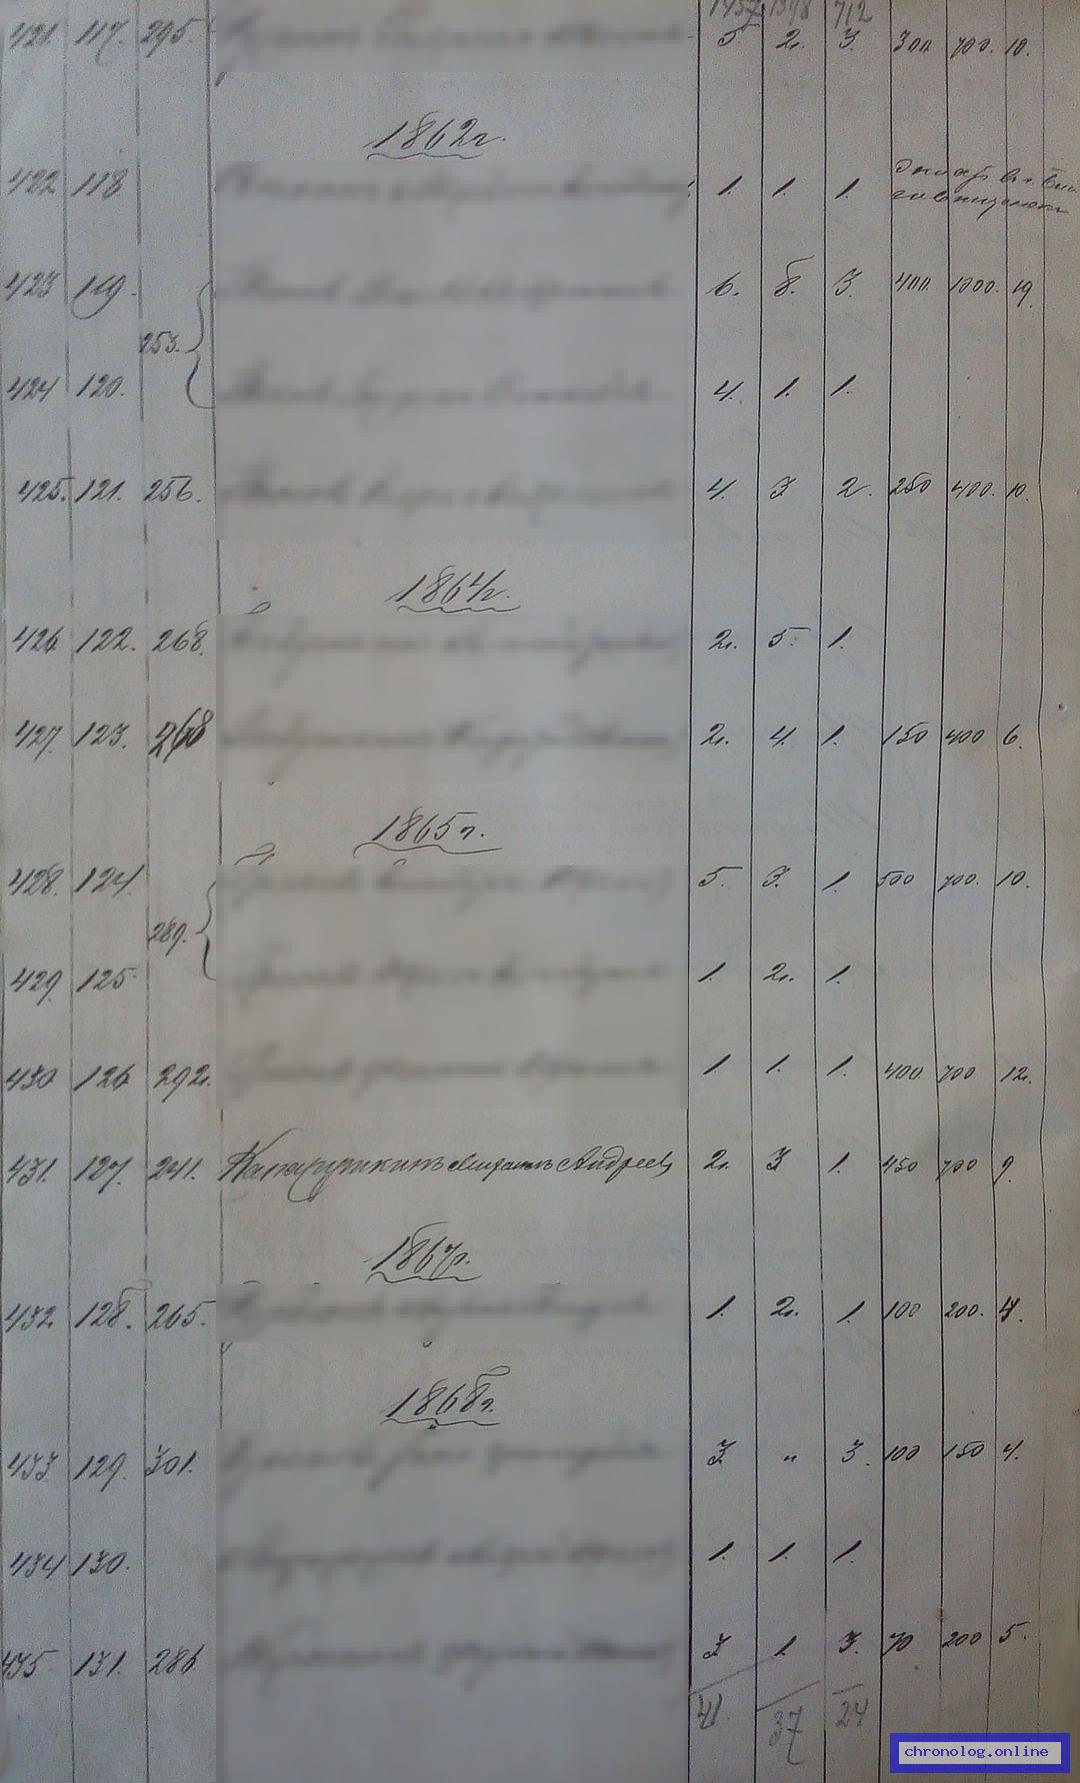 1457 1398 712
421. 117. 295. 5. 2. 3. 300. 700. 10.
1862 г.
422 118 1. 1. 1.
423 119. 6. 8. 3. 400. 1000. 19.
253.
424 120. 4. 1. 1.
425. 121. 256. 4. 3 2. 250 400. 10.
1864 г.
426 122. 268. 2. 5. 1.
427. 123. 268 2. 4. 1. 150 400 6.
1865 г.
428. 124 5. 3. 1. 500 700. 10.
289.
429. 125. 1. 2. 1.
430 126 292. 1 1. 1. 400 700 12.
431. 127. 241. Андреев 2. 3 1. 450 700 9.
1867 г.
432 128. 265. 1. 2. 1. 100 200. 4.
1868 г.
433 129. 301. 3. " 3. 100 150 4.
434 130. 1. 1. 1.
435 131. 286 3. 1. 3. 70 200 5.
41. 37 24
chronolog.online